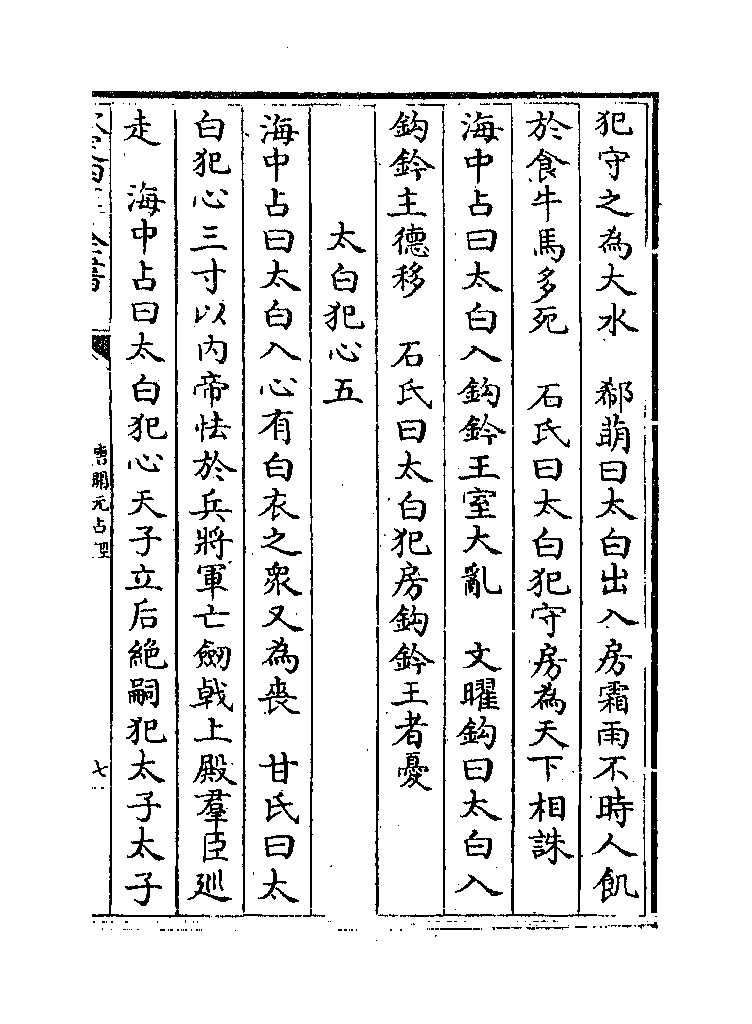 犯守之為大水　郗萌曰太白出入房霜雨不時人飢
於食牛馬多死　石氏曰太白犯守房為天下相誅
海中占曰太白入鈎鈐王室大亂　文曜鈎曰太白入
鈎鈐主德移　石氏曰太白犯房鈎鈐王者憂
太白犯心五
海中占曰太白入心有白衣之衆又為喪　甘氏曰太
白犯心三寸以内帝怯於兵將軍亡劒戟上殿羣臣廵
走　海中占曰太白犯心天子立后絶嗣犯太子太子
唐開元占經
七